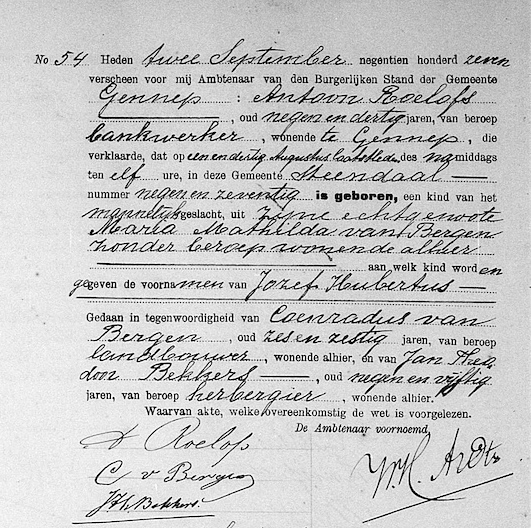 No 54 Heden twee September negentien honderd zeven
verscheen voor mij Ambtenaar van den Burgerlijken Stand der Gemeente
Gennep : Antoon Roelofs
, oud negen en dertig jaren, van beroep
bankwerker, wonende te Gennep, die
verklaarde, dat op een en dertig Augustus laatstleden des namiddags
ten elf ure, in deze Gemeente Steendaal
nummer negen en zeventig is geboren, een kind van het
mannelijk geslacht, uit zijne echtgenoote
Maria Mathilda van Bergen
zonder beroep wonende alhier
aan welk kind worden
gegeven de voornamen van Jozef Hubertus
Gedaan in tegenwoordigheid van Coenradus van
Bergen, oud zes en zestig jaren, van beroep
landbouwer, wonende alhier, en van Jan Theo
door Bekkers, oud negen en vijftig
jaren, van beroep herbergier, wonende alhier.
Waarvan akte, welke overeenkomstig de wet is voorgelezen.
De Ambtenaar voornoemd,
A Roelofs
C v Bergen
J Th Bekkers.